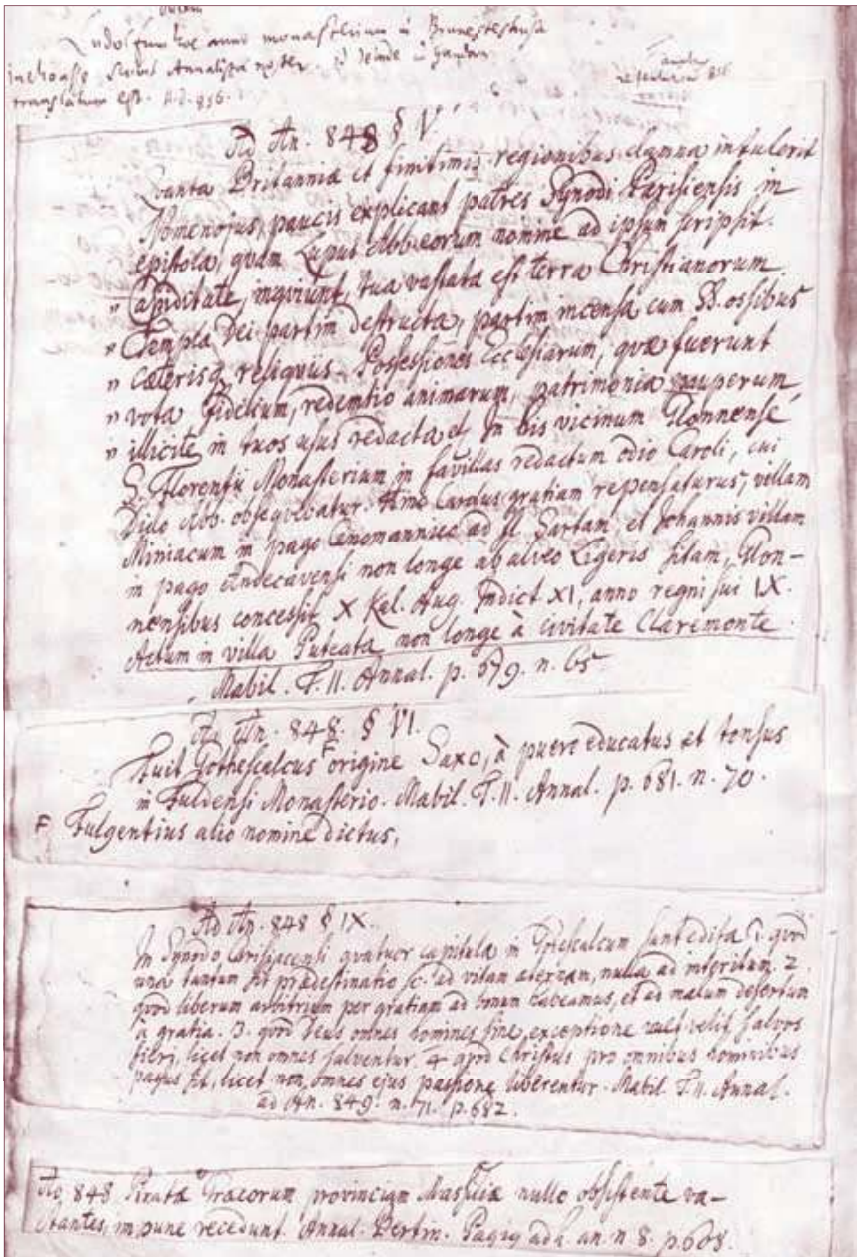 anno monasterium in Brunesteshusa
Annalista noster. deinde in
translatum est. A.D. 856.
856
Ad An. 848 § V.
Quanta Britanniæ et finitimis regionibus damna intulerit
Nomenojus, paucis explicant patres Synodi Parisiensis in
epistola, quam Lupus Abb. eorum nomine ad ipsum scripsit.
" Cupiditate, inquiunt, tua vastata est terra Christianorum
" Templa Dei partim destructa, partim incensa cum SS. ossibus
" cæterisq reliquiis. Possessiones Ecclesiarum, quæ fuerunt
" vota fidelium, redemtio animarum, patrimonia pauperum,
" illicite in tuos usus redacta et In his vicinum Glonnense
S. Florentii Monasterium in favillas redactum odio Caroli, cui
Dido Abb. obsequebatur. Carolus gratiam repensaturus, villam
Miniacum in pago Cenomannico ad fl. Sartam, et Johannis villam
in pago Andecavensi non longe ab alveo Ligeris sitam, Glon-
nensibus concessit X Kal. Aug. Indict. XI, anno regni sui IX.
Actum in villa Puteata non longe à civitate Claremonte.
Mabil. T. II. Annal. p. 679. n. 65
Ad An. 848. § VI.
Fuit Gothescalcus F origine Saxo, à puero educatus et tonsus
in Fuldensi Monasterio. Mabil. T. II. Annal. p. 681. n. 70.
F Fulgentius alio nomine dictus,
Ad An. 848 § IX.
In Synodo Carisiacensi quatuor capitula in Gothescalcum sunt edita 1. quod
una tantum sit prædestinatio sc. ad vitam æternam, nulla ad interitum. 2.
quod liberum arbitrium per gratiam ad bonum habeamus, et ad malum desertum
à gratia. 3. quod Deus omnes homines sine exceptione velit salvos
fieri, licet non omnes salventur. 4 quod Christus pro omnibus hominibus
passus sit, licet non omnes ejus passione liberentur. Mabil. T. II. Annal.
ad An. 849. n. 71. p. 682.
Ao 848 Piratæ Græcorum provinciam Massiliæ nullo obsistente va-
stantes, impune recedunt. Annal. Bertin. Pagig ad h. an. n 8. p. 608.